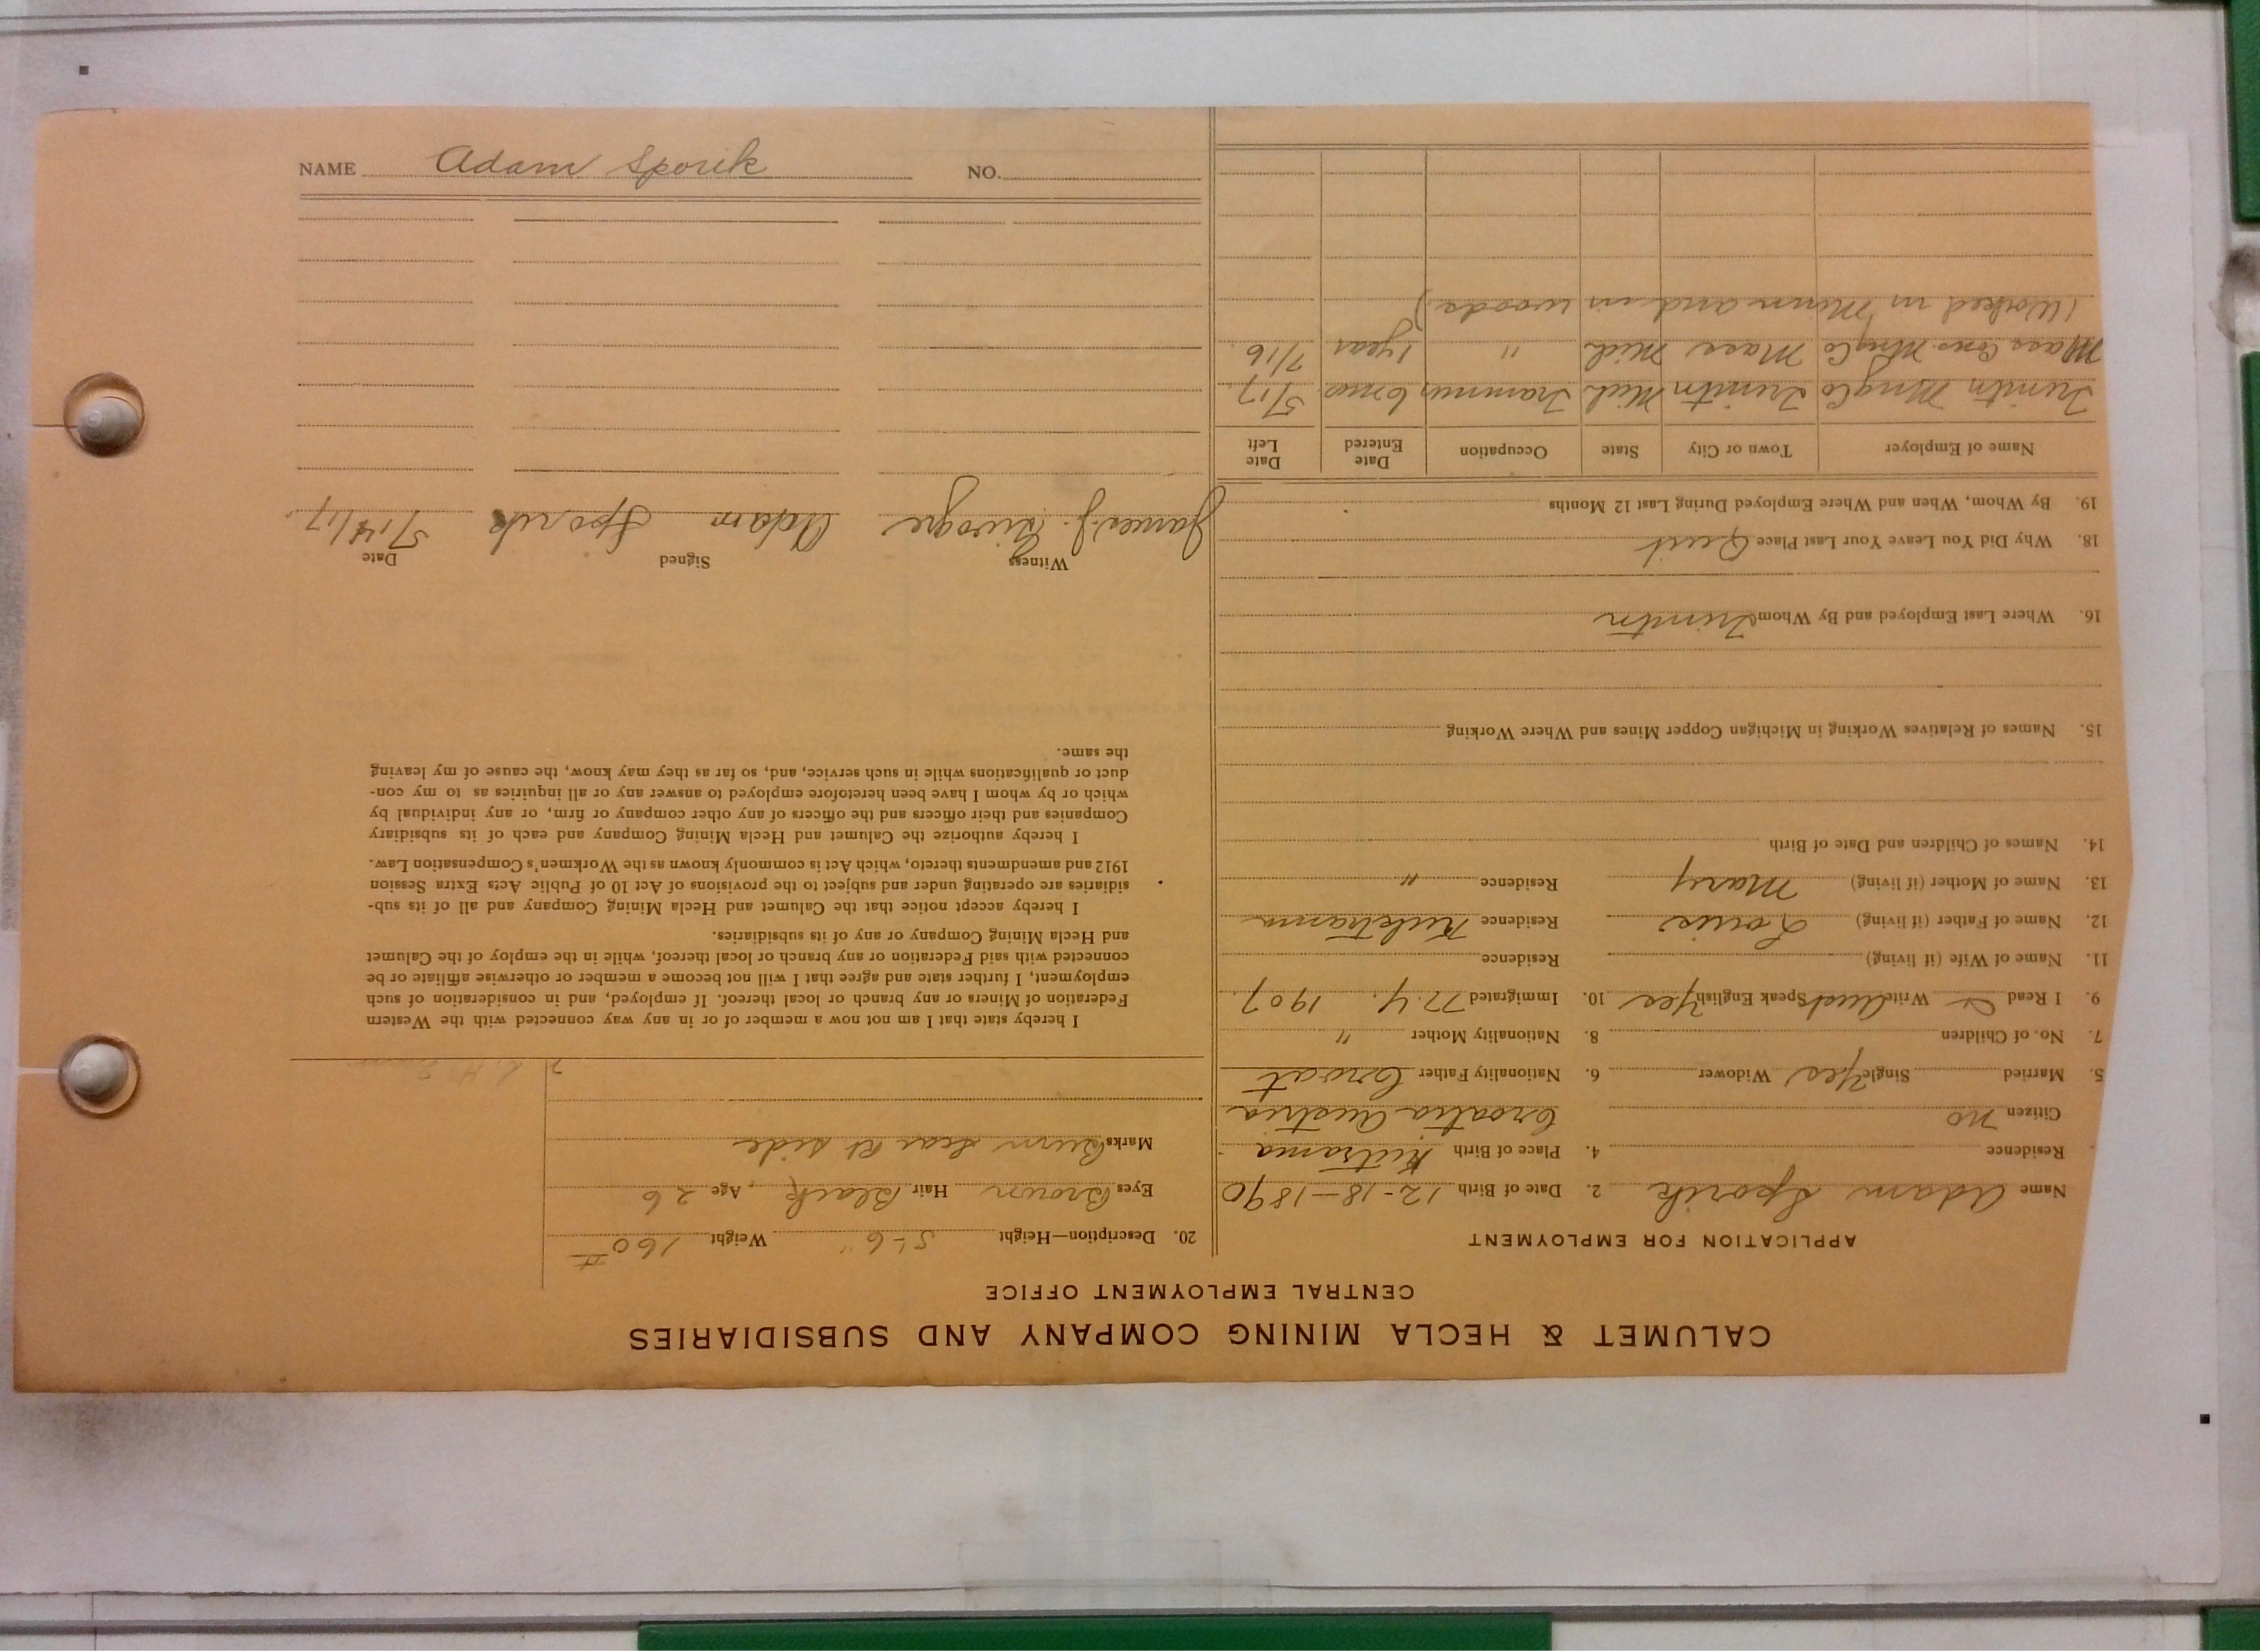 CALUMET & HECLA MINING COMPANY AND SUBSIDIARIES
CENTRAL EMPLOYMENT OFFICE
APPLICATION FOR EMPLOYMENT
Name Adam Sporik 2. Date of Birth 12-18-1890
Residence 4. Place of Birth
Citizen no Croatia Austria
5. Married Single Yes Widower 6. Nationality Father Croat
7. No. of Children 8. Nationality Mother "
9. I Read Write Speak English Yes 10. Immigrated N.Y. 1907
11. Name of Wife (if living) Residence
12. Name of Father (if living) Louis Residence
13. Name of Mother (if living) Mary Residence "
14. Names of Children and Date of Birth
15. Names of Relatives Working in Michigan Copper Mines and Where Working
16. Where Last Employed and By Whom Trimtn
18. Why Did You Leave Your Last Place Quit
19. By Whom, When and Where Employed During Last 12 Months
Name of Employer Town or City State Occupation Date Entered Date Left
Trimtn Mng Co Trimtn Mich Trammer 6 mos 5/17
Mass Cons Mng Co Mass Mich " 1 year 7/16
(Worked in Minn and in woods)
20. Description—Height 5'-6" Weight 160 #
Eyes Brown Hair Black, Age 26
Marks Burn Scar Rt side
I hereby state that I am not now a member of or in any way connected with the Western
Federation of Miners or any branch or local thereof. If employed, and in consideration of such
employment, I further state and agree that I will not become a member or otherwise affiliate or be
connected with said Federation or any branch or local thereof, while in the employ of the Calumet
and Hecla Mining Company or any of its subsidiaries.
I hereby accept notice that the Calumet and Hecla Mining Company and all of its sub-
sidiaries are operating under and subject to the provisions of Act 10 of Public Acts Extra Session
1912 and amendments thereto, which Act is commonly known as the Workmen's Compensation Law.
I hereby authorize the Calumet and Hecla Mining Company and each of its subsidiary
Companies and their officers and the officers of any other company or firm, or any individual by
which or by whom I have been heretofore employed to answer any or all inquiries as to my con-
duct or qualifications while in such service, and, so far as they may know, the cause of my leaving
the same.
Witness Signed Date
James J. Adam Sporik 5/14/17
NAME Adam Sporik NO.